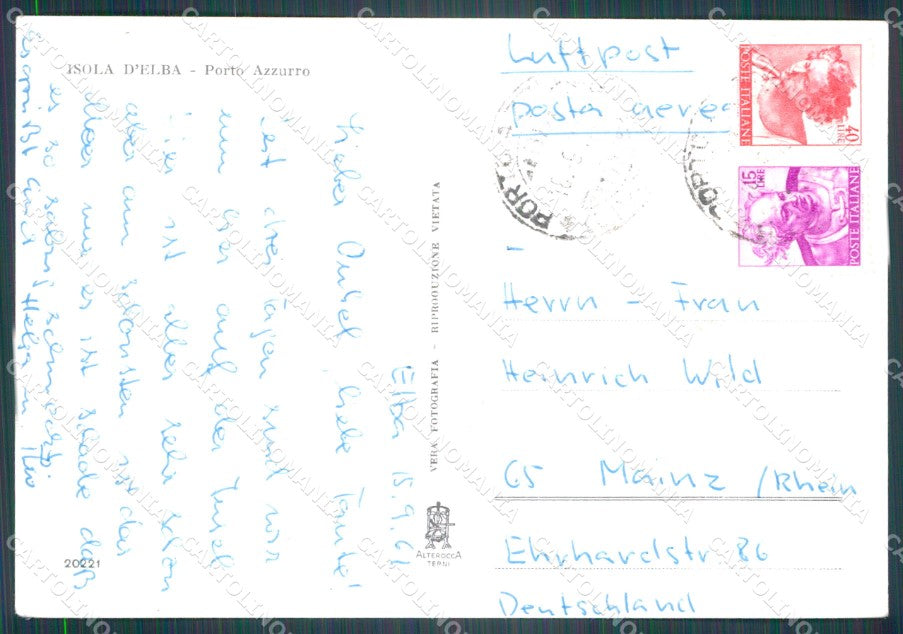 ISOLA D'ELBA - Porto Azzurro
Elba 15.9.61
Lieber Onkel, liebe Tante!
Seit drei Tagen sind wir
nun hier auf der Insel
hier ist alles sehr schön
aber am schönsten ist das
Meer nur es ist schade daß
es so salzig schmeckt
Es grüßt euch Helga
VERA FOTOGRAFIA - RIPRODUZIONE VIETATA
ALTEROCCA
TERNI
20221
Luftpost
posta aerea
POSTE ITALIANE
LIRE 40
15 LIRE
POSTE ITALIANE
PORTO
Herrn - Frau
Heinrich Wild
65 Mainz /Rhein
Ehrhardstr 86
Deutschland
CARTOLINOMANIA